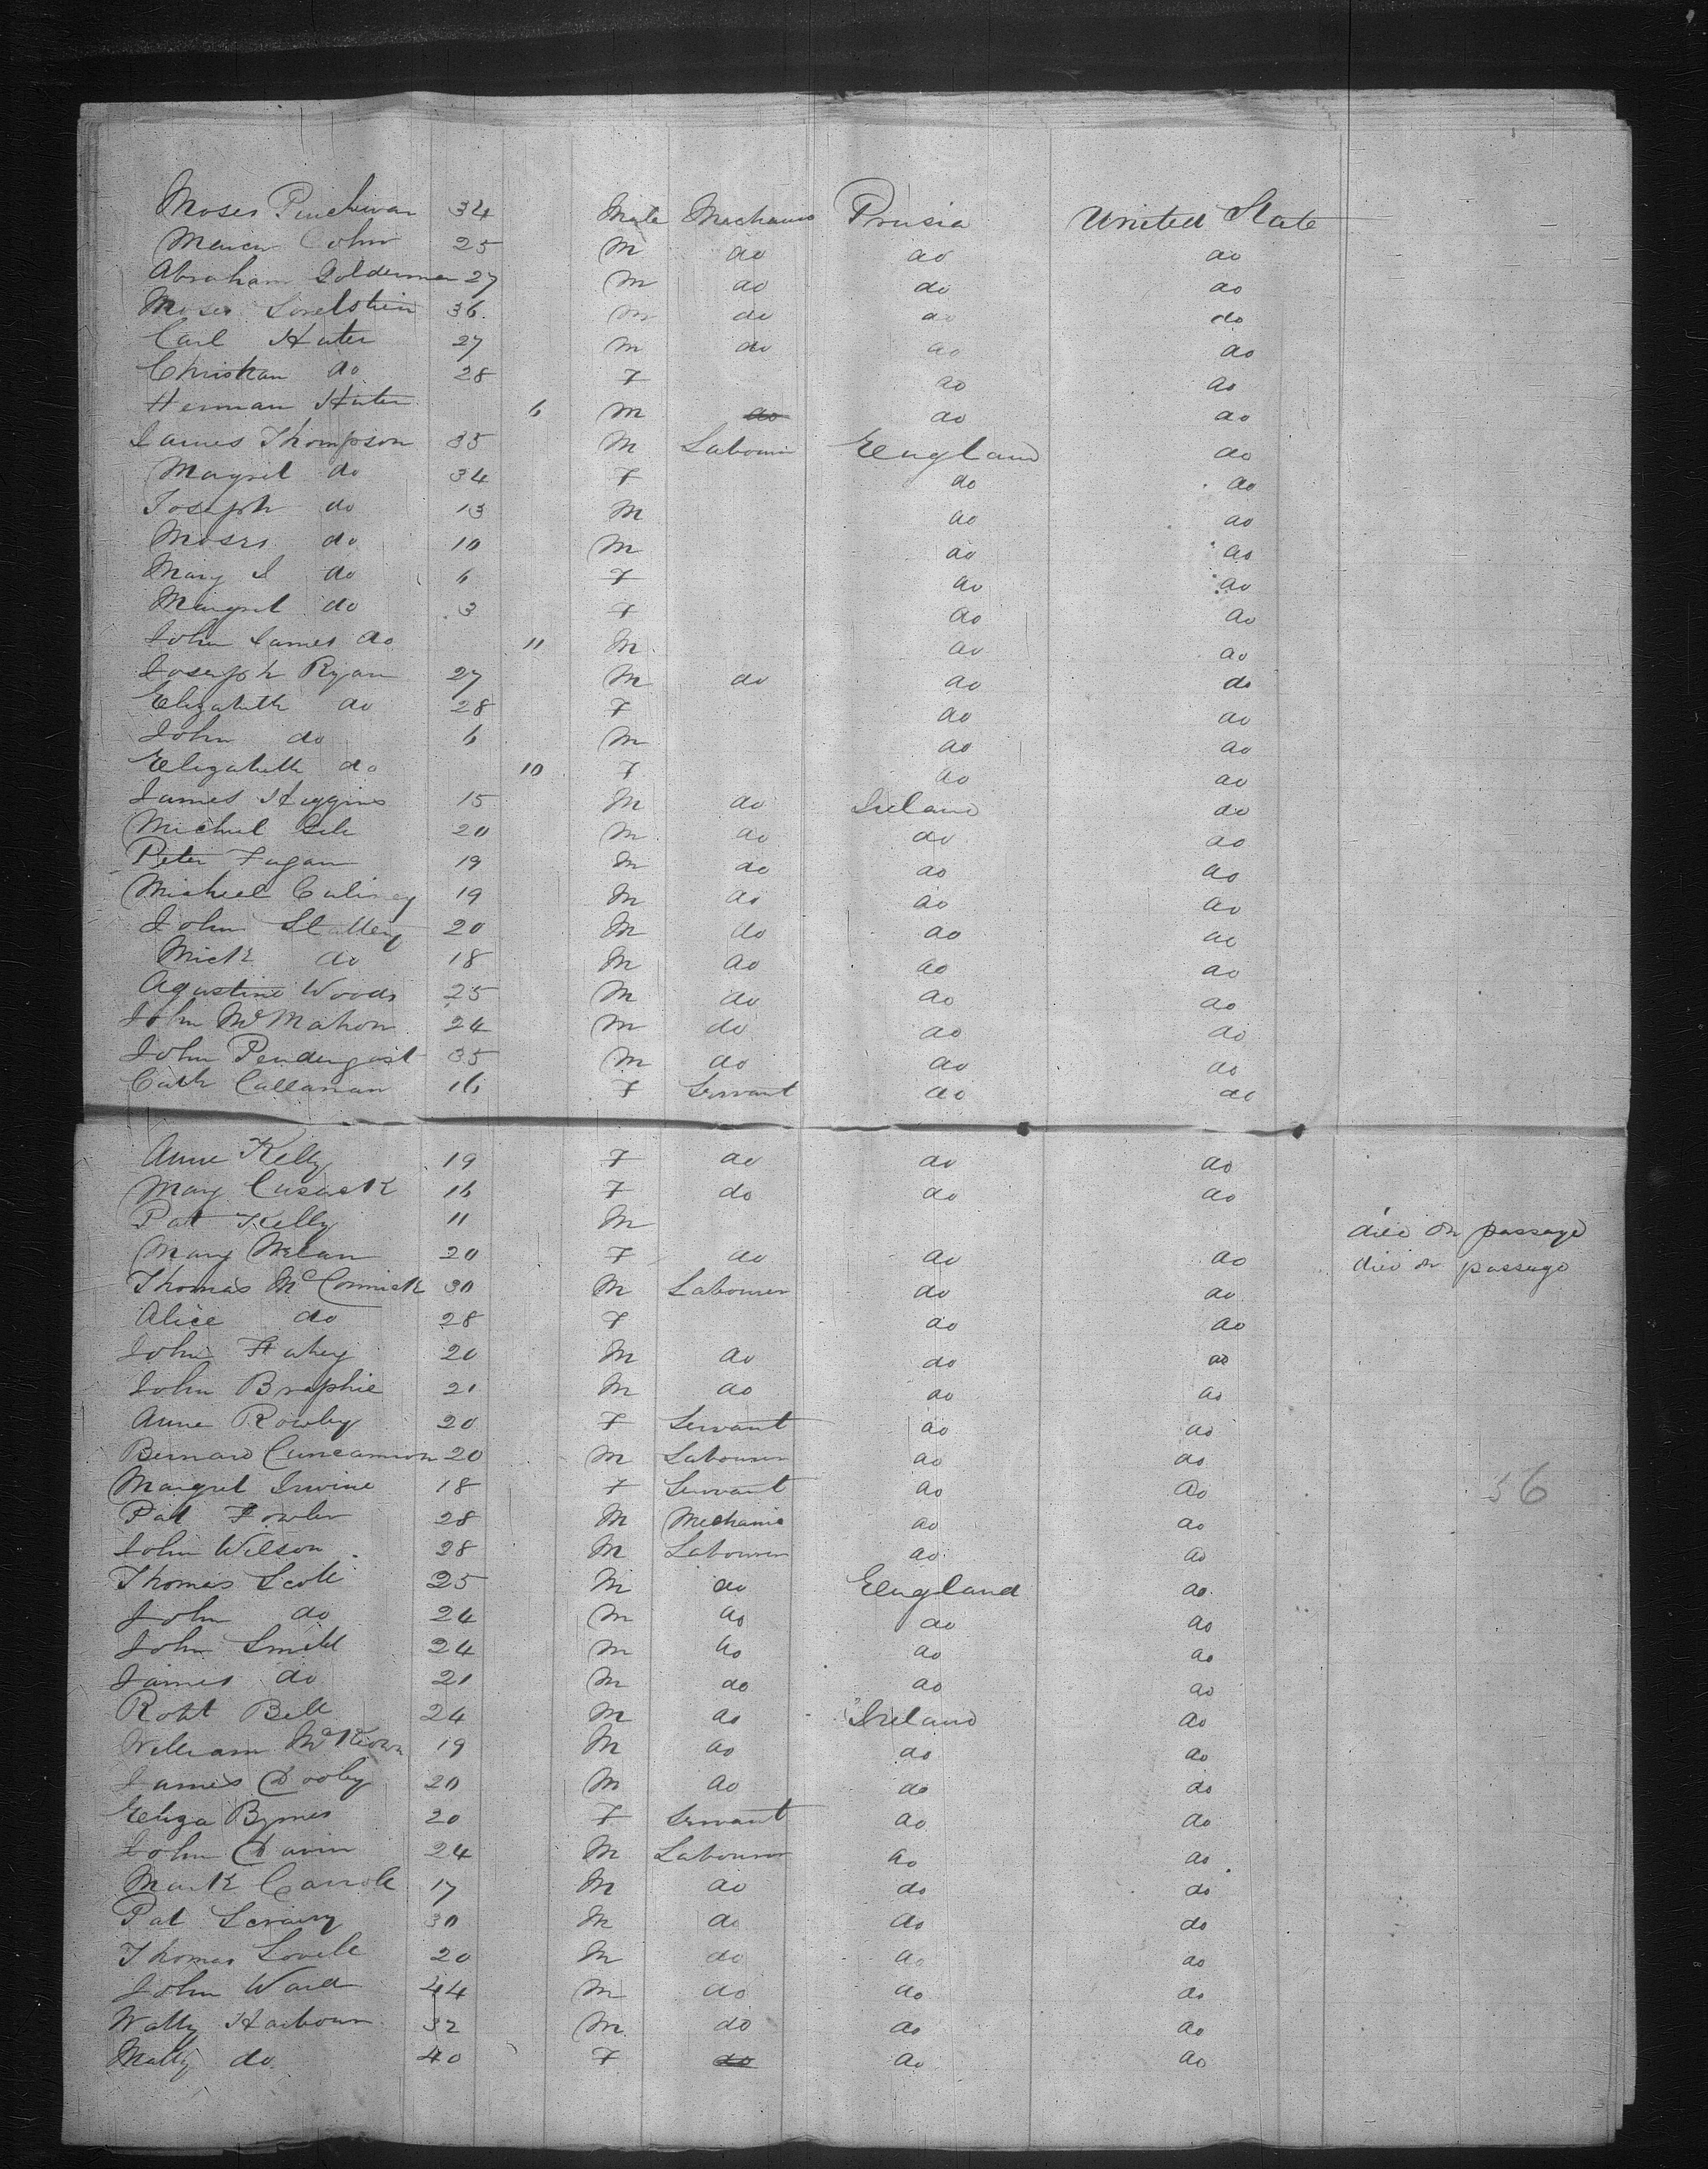 Moses 34 Male Mechanic Prusia United State
Cohn 25 M do do do
Abraham Golderman 27 M do do do
Moses 36 M do do do
Carl Hater 27 M do do do
Christian do 28 F do do
Herman Hater 6 M do do do
James Thompson 35 M Labourer England do
Magret do 34 F do do
Joseph do 13 M do do
Moses do 10 M do do
Mary J do 6 F do do
Margret do 3 F do do
John James do 11 M do do
Joseph Ryan 27 M do do do
Elizabeth do 28 F do do
John do 6 M do do
Elizabeth do 10 F do do
James Huggins 15 M do Ireland do
Michel 20 M do do do
Peter Fagan 19 M do do do
Michael 19 M do do do
John Slattery 20 M do do do
Mick do 18 M do do do
Agustine Woods 25 M do do do
John McMahon 24 M do do do
John Pendergast 35 M do do do
Cath Callanan 16 F Servant do do
Anne Kelly 19 F do do do
Mary Cusack 16 F do do do
Pat Kelly 11 M died on passage
Mary 20 F do do do died on passage
Thomas McCormick 30 M Labourer do do
Alice do 28 F do do
John Fahey 20 M do do do
John Brophie 21 M do do do
Anne Rowley 20 F Servant do do
Bernard 20 M Labourer do do
Margret Irwine 18 F Servant do do
Pat Fowler 28 M Mechanic do do
John Wilson 28 M Labourer do do
Thomas Scott 25 M do England do
John do 24 M do do do
John Smith 24 M do do do
James do 21 M do do do
Robt Bell 24 M do Ireland do
William McKeown 19 M do do do
James Dooley 20 M do do do
Eliza Byrnes 20 F Servant do do
John Davin 24 M Labourer do do
Mark Carroll 17 M do do do
Pat 30 M do do do
Thomas Lovele 20 M do do do
John Ward 44 M do do do
Watty Harbourn 32 M do do do
Matty do 40 F do do do